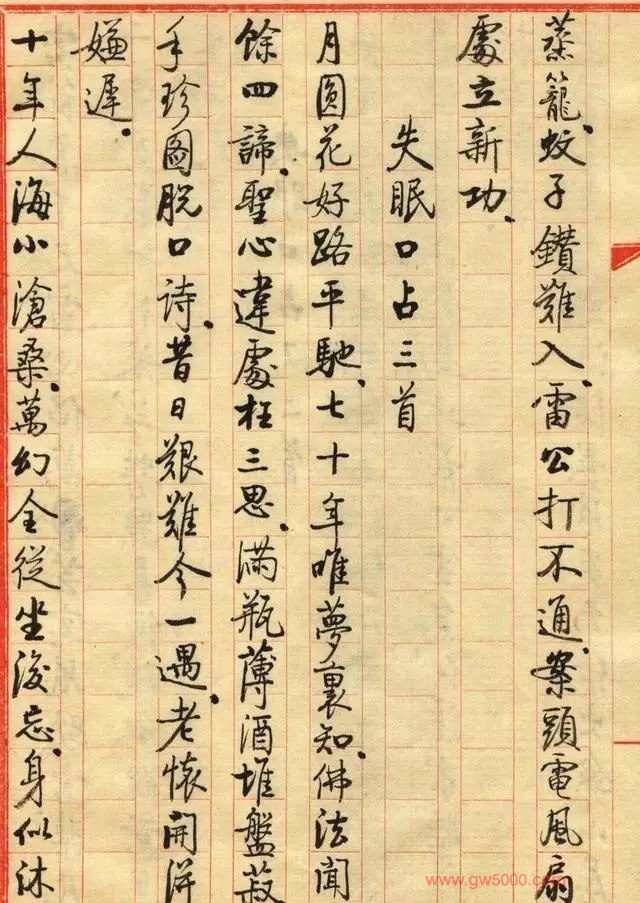 蒸籠。蚊子鑽難入。雷公打不通。案頭電風扇
處立新功。
失眠口占三首
月圓花好路平馳。七十年唯夢裏知。佛法聞
餘四諦。聖心違處枉三思。滿瓶薄酒堆盤菽
手珍圖脫口詩。昔日艱難今一遇。老懷開洴
嫌遲。
十年人海小滄桑。萬幻全從坐後忘。身似沐
www.gw5000.com